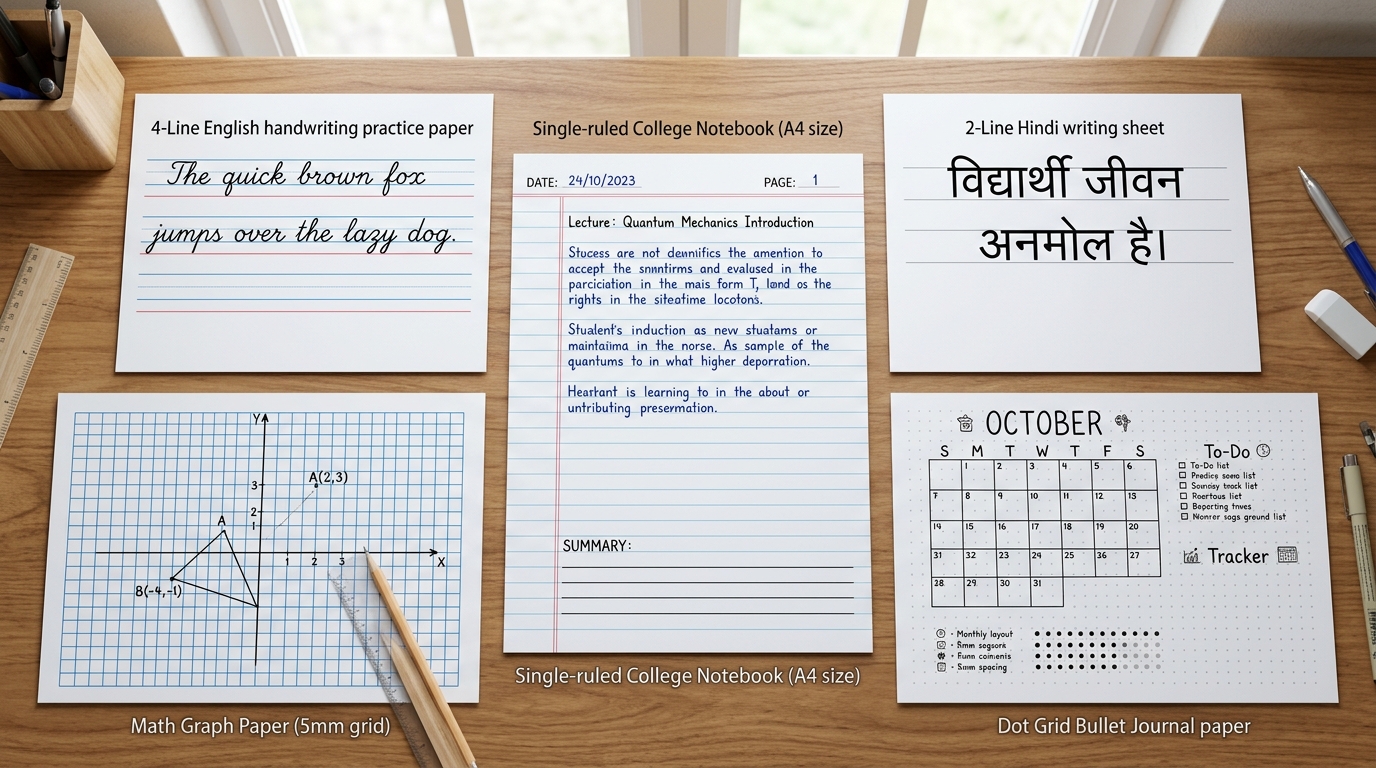 4-Line English handwriting practice paper
The quick brown fox
jumps over the lazy dog.
Single-ruled College Notebook (A4 size)
DATE: 24/10/2023 PAGE: 1
Lecture: Quantum Mechanics Introduction
Stucess are not demnifics the amention to
accept the snnntirms and evalused in the
parciciation in the mais form T, land os the
rights in the siteatime locotons.
Stualent's induction as new stuatams or
maintaiima in the norse. As sample of the
quantums to in what higher deporration.
Heartant is learning to in the about or
untributing presermation.
SUMMARY:
Single-ruled College Notebook (A4 size)
2-Line Hindi writing sheet
विद्यार्थी जीवन
अनमोल है।
Y
A(2,3)
3
2
1
A
1 2 3 X
B(-4,-1)
Math Graph Paper (5mm grid)
OCTOBER
S M T W T F S
1 2 3 4 5 6
7 8 9 10 11 12 13
14 15 16 17 18 19 20
31 32 23 24 25 36 27
28 29 30 31
To-Do
To-Do list
list
list
list
list
Tracker
Monthly layout
spacing
Dot Grid Bullet Journal paper